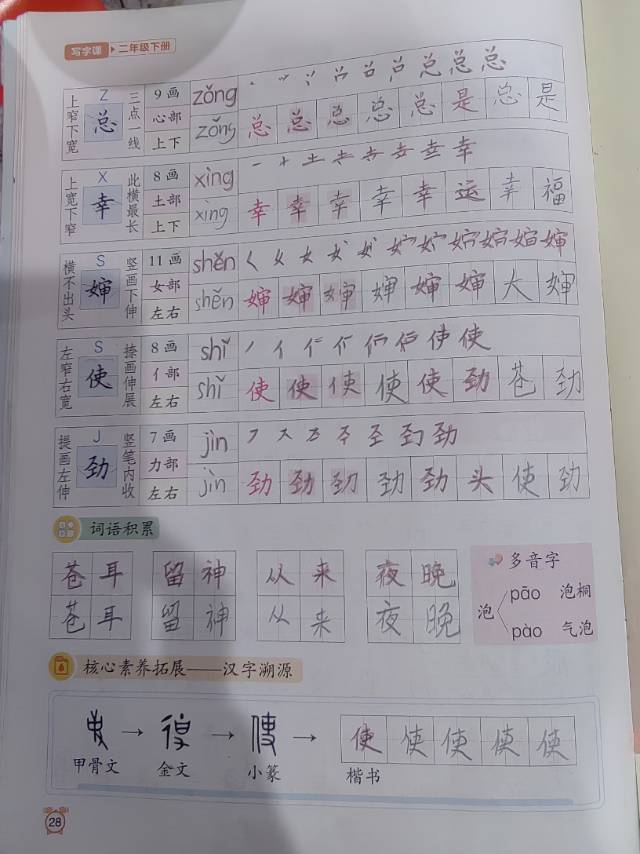 写字课 二年级下册
上窄下宽 Z 总 三点一线 9画 心部 上下 zǒng
zǒng 总 总 总 总 总 是 总 是
上宽下窄 X 幸 此横最长 8画 土部 上下 xìng 幸
xìng 幸 幸 幸 幸 幸 运 幸 福
横不出头 S 婶 竖画下伸 11画 女部 左右 shěn 婶
shěn 婶 婶 婶 婶 婶 婶 大 婶
左窄右宽 S 使 捺画伸展 8画 亻部 左右 shǐ 使
shǐ 使 使 使 使 使 劲 苍 劲
提画左伸 J 劲 竖笔内收 7画 力部 左右 jìn 劲
jìn 劲 劲 劲 劲 劲 头 使 劲
词语积累
苍耳 留神 从来 夜晚
苍耳 留神 从来 夜晚
多音字
泡 pāo 泡桐
pào 气泡
核心素养拓展——汉字溯源
→ → → 使 使 使 使 使
甲骨文 金文 小篆 楷书
28